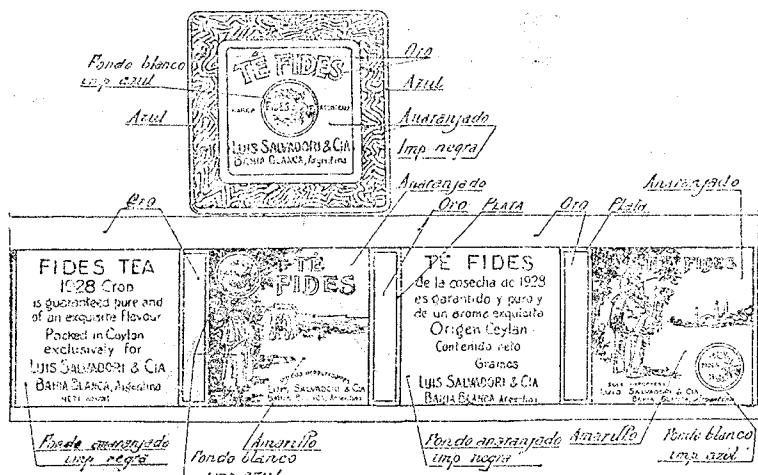 Oro
Fondo blanco
imp azul
Azul
Azul
Anaranjado
Imp negra
TÉ FIDES
MARCA
FIDES
LUIS SALVADORI & CIA
BAHIA BLANCA, Argentina
Anaranjado
Oro
Oro
PLATA
Oro
Plata
Anaranjado
FIDES TEA
1928 Crop
is guaranteed pure and
of an exquisite flavour
Packed in Ceylon
exclusively for
LUIS SALVADORI & CIA
BAHIA BLANCA, Argentina
TÉ
FIDES
LUIS SALVADORI & CIA
BAHIA BLANCA, Argentina
TÉ FIDES
de la cosecha de 1928
es garantido y puro y
de un aroma exquisito
Origen Ceylan
Contenido neto
Gramos
LUIS SALVADORI & CIA
BAHIA BLANCA Argentina
TÉ FIDES
LUIS SALVADORI & CIA
BAHIA BLANCA, Argentina
Fondo anaranjado
imp negra
Fondo blanco
imp azul
Amarillo
Fondo anaranjado
imp negra
Amarillo
Fondo blanco
imp azul